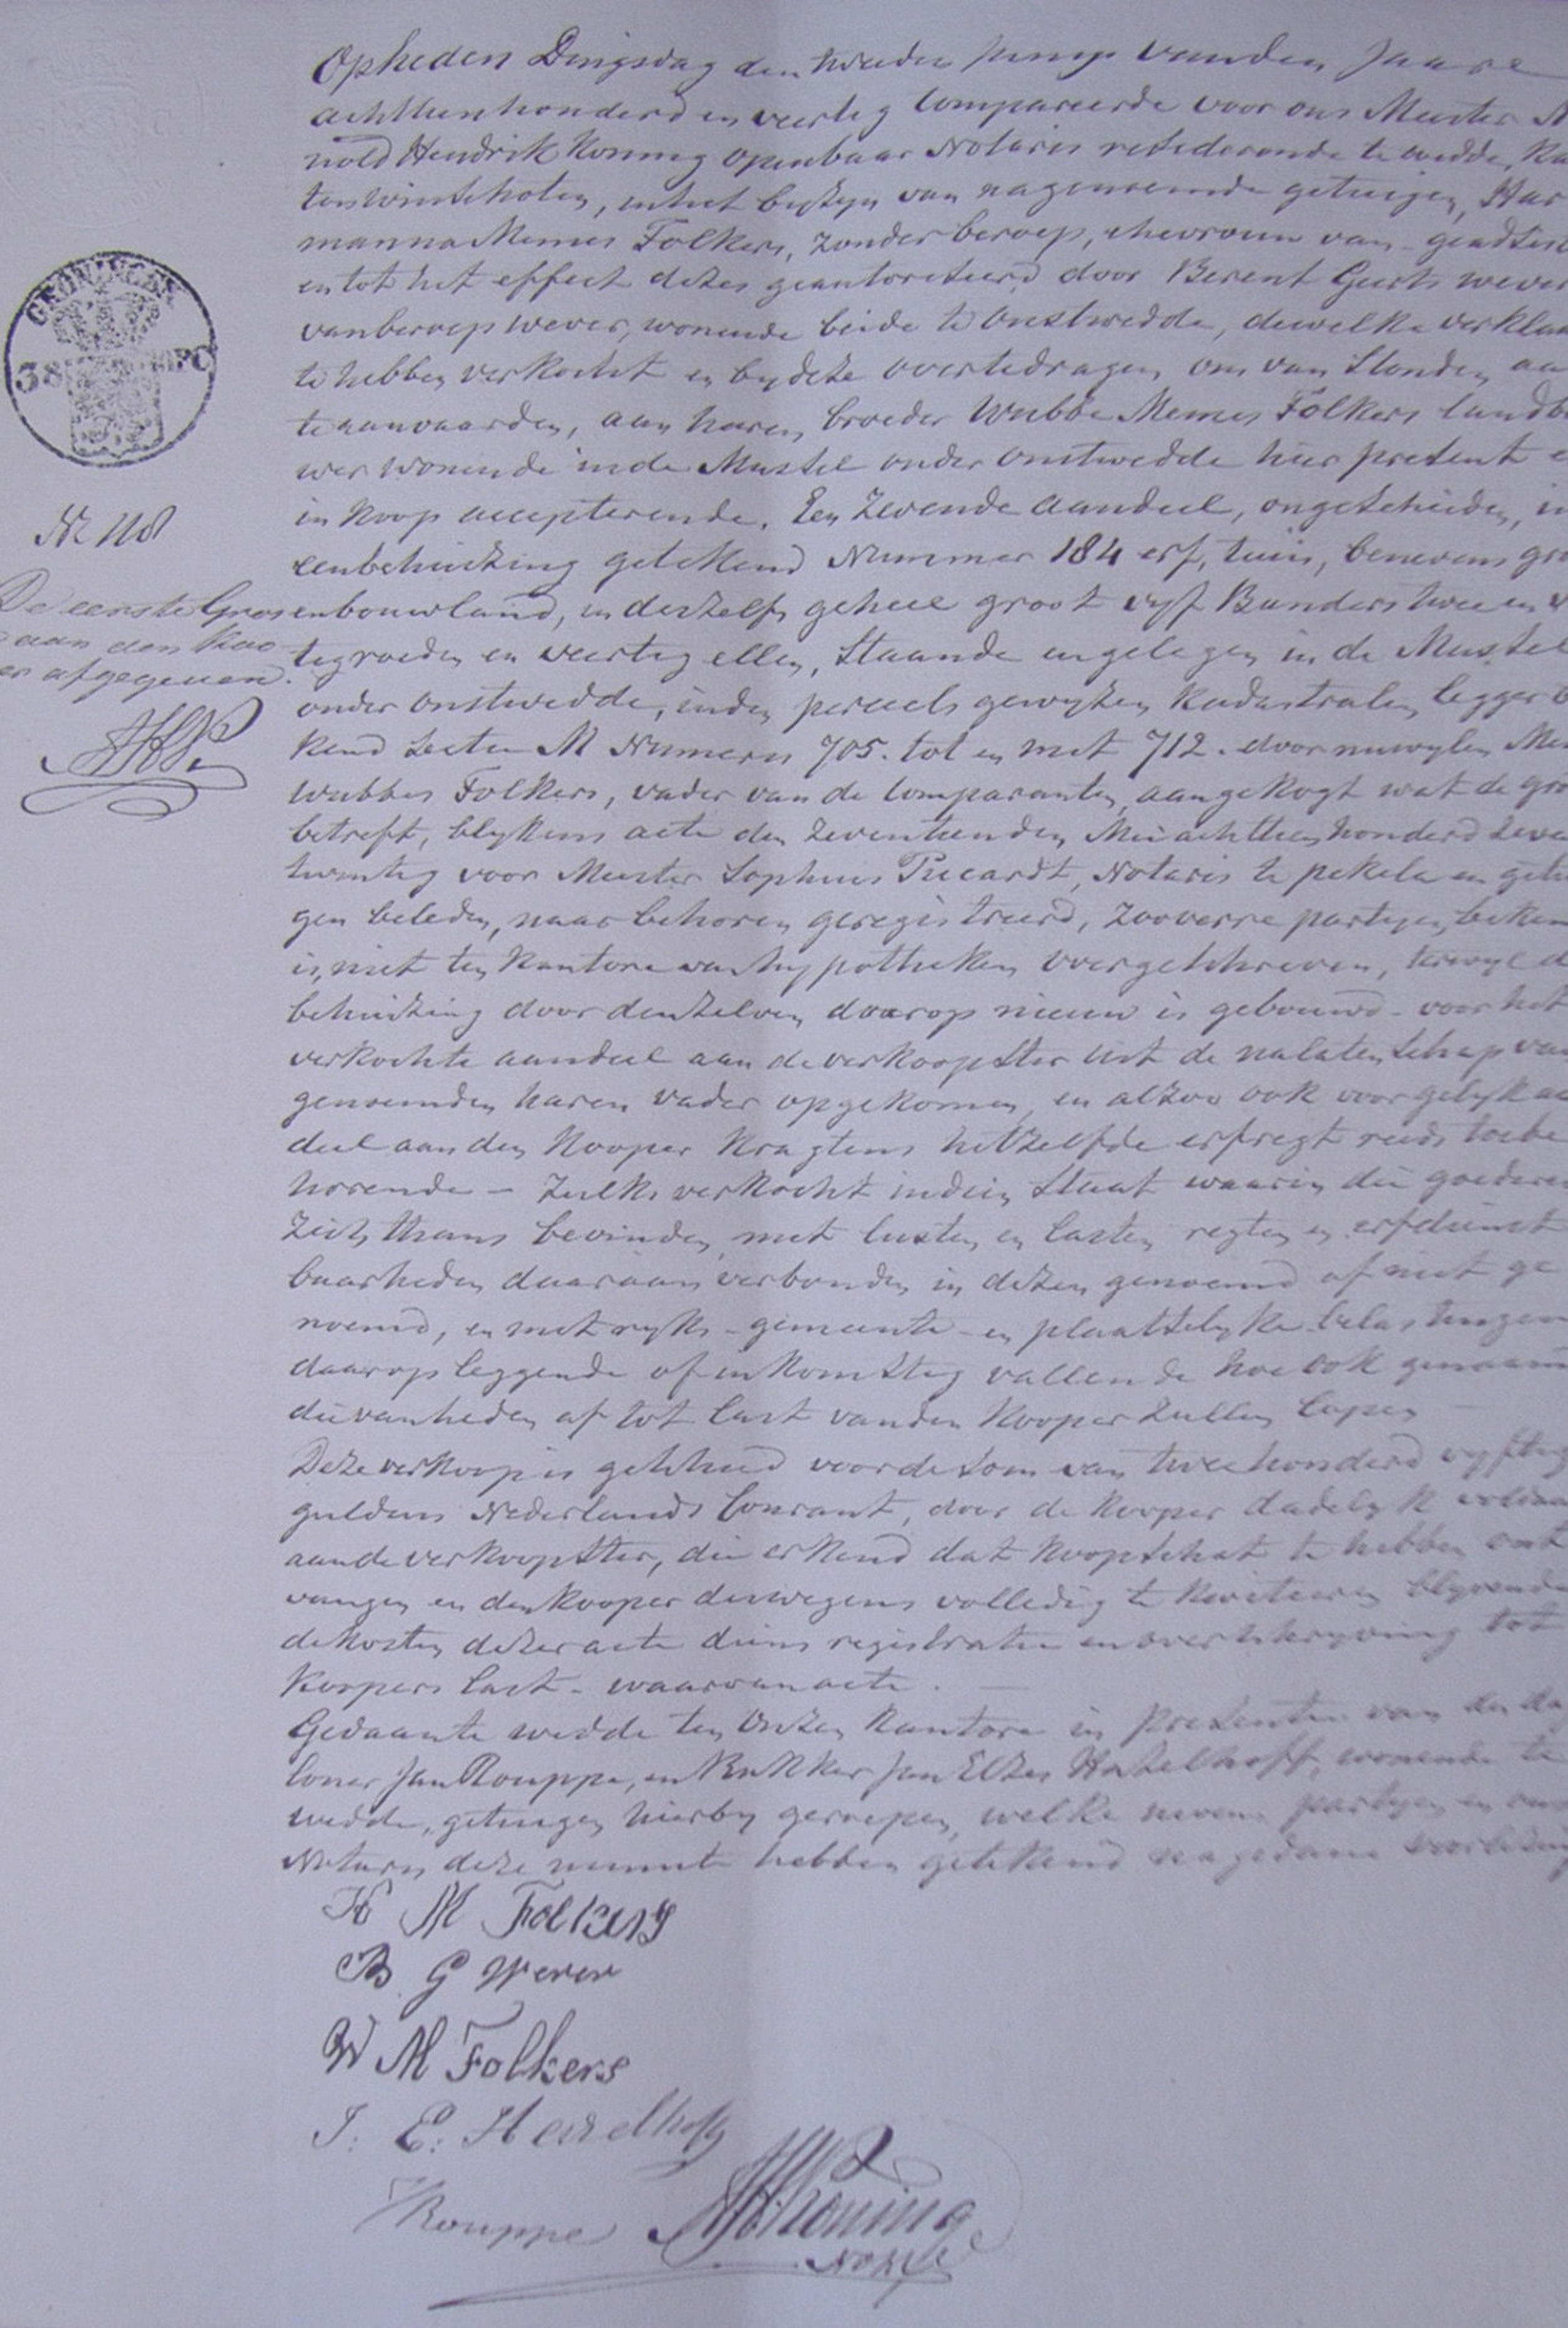 Opheden Dingsdag den tweeden Junij vanden Jaare
achttienhonderd en veertig Compareerde voor ons Meester
nold Hendrik Koning openbaar Notaris resideerende te wedde,
ten Winschoten, in het byzyn van nagenoemde getuigen, Har
manna Memes Folkers, zonder beroep, ehevrouw van - geadsist
en tot het effect dezes geautoriseerd door Berent Geerts wever
van beroep wever, wonende beide te Onstwedde, dewelke verklaa
te hebben verkocht en by deze overtedragen, om van Stonden aa
te aanvaarden, aan haren broeder Wubbe Memes Folkers landbo
wer wonende in de Mussel onder Onstwedde hier present e
in koop accepterende. Een Zevende aandeel, ongescheiden, in
eenbehuizing getekend Nummer 184 erf, tuin, benevens gro
enbouwland, in deszelfs geheel groot vyf Bunders twee en v
tig roeden en veertig ellen, Staande en gelegen in de Mussel
onder Onstwedde, in den perceels gewyzen Kadastralen legger
kend Sectie M Numeros 705. tot en met 712. door nu wylen Me
Wubbes Folkers, vader van de Comparanten, aangekogt wat de gro
betreft, blykens acte den zeventienden Mei achttienhonderd zeve
twintig voor Meester Sophius Picardt, Notaris te pekela en getu
gen beleden, naar behoren geregistreerd, zooverre partyen beken
is, niet ten Kantore van hypotheken overgeschreven, terwyl d
behuizing door denzelven daarop nieuw is gebouwd - voor het
verkochte aandeel aan de verkoopster uit de nalatenschap van
genoemden haren vader opgekomen, en alzoo ook voor gelyk aan
deel aan den Kooper kragtens hetzelfde erfregt reeds toebe
horende - Zulks verkocht in dien Staat waarin die goederen
zich thans bevinden, met lusten en lasten regten en erfdienst
baarheden daaraan verbonden, in dezen genoemd of niet ge
noemd, en met ryks - gemeente - en plaatselyke belastingen
daarop leggende of inkomstig vallende hoe ook genaamd
die van heden af tot last van den Kooper zullen lopen
Deze verkoop is geschied voor de som van twee honderd vyftig
guldens Nederlands Courant, door de Kooper dadelyk voldaan
aan de verkoopster, die erkend dat koopschat te hebben ont
vangen en den kooper deswegens volledig te kwiteeren blyvende
de kosten dezer acte diens registratie en overschryving tot
Koopers last - waarvan acte.
Gedaan te wedde ten Onzen Kantore in presentie van de da
loner Jan Rouppe, en Bakker Jan Elzes Hazelhoff, wonende te
wedde, getuigen hierby geroepen, welke nevens partyen en ons
Notaris deze minute hebben getekend na gedane voorlezing
H M Folkers
B G Wever
W M Folkers
J: E: Hazelhoff
JRouppe
AHKoning
Nots
GRONINGEN
38
No 118
De eerste Gros
aan den Koo
er afgegeven.